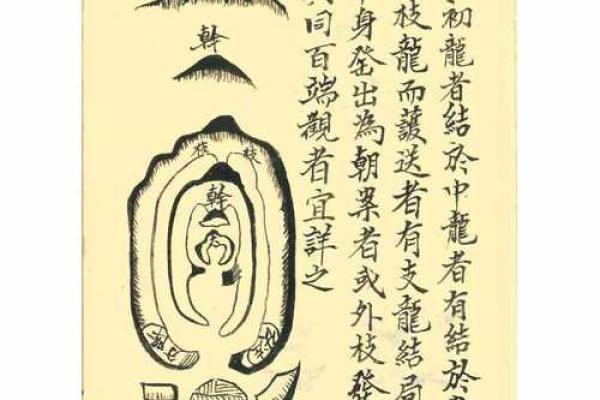 初龍者結於中龍者有結於
枝龍而護送者有支龍結局
身發出為朝案者或外枝發
同百端觀者宜詳之
幹
枝
枝
幹